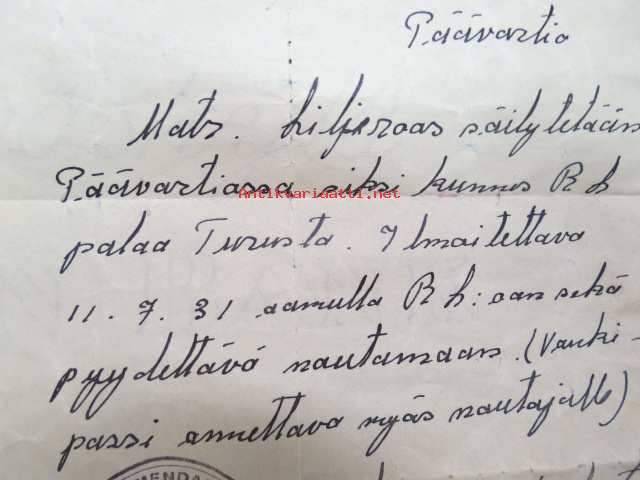 Päävartio
Mats. Liljeroos säilytetään
Päävartiossa siksi kunnes R h
Antikvariaatti.net
palaa Turusta. Ilmoitettava
11.7.31 aamulla R h:oon sekä
pyydettävä noutamaan. (Vanki-
passi annettava myös noutajalle)
MENDA